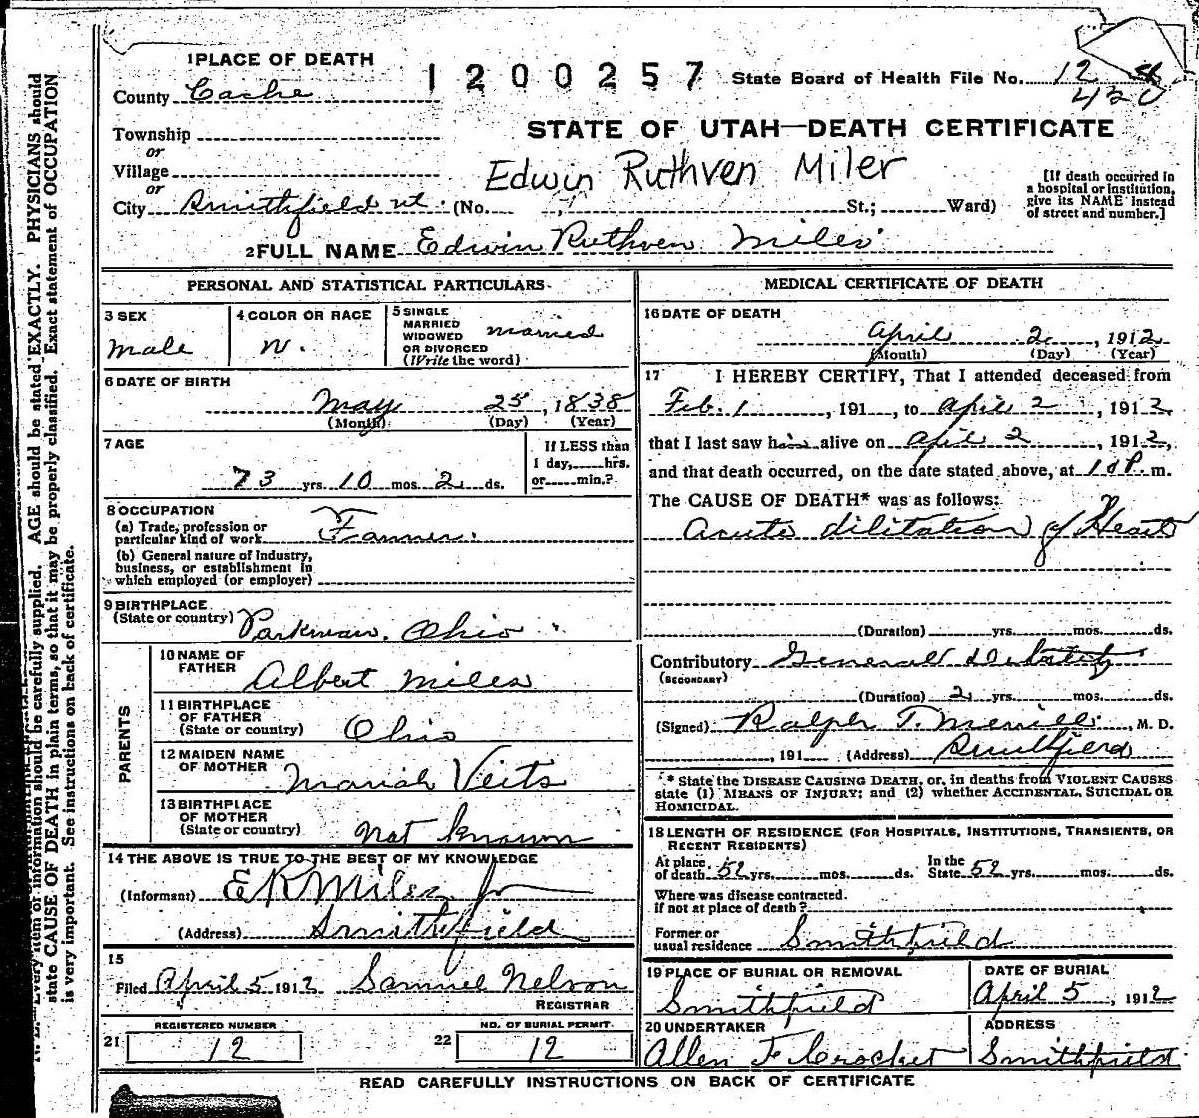 1 PLACE OF DEATH
1200257
State Board of Health File No. 12
420
County Cache
STATE OF UTAH—DEATH CERTIFICATE
Township
or
Village
or
City Smithfield ut. (No. St.; Ward)
Edwin Ruthven Miler
[If death occurred in
a hospital or institution,
give its NAME instead
of street and number.]
2 FULL NAME Edwin Ruthven Miles
PERSONAL AND STATISTICAL PARTICULARS
3 SEX
Male
4 COLOR OR RACE
W.
5 SINGLE
MARRIED
WIDOWED
OR DIVORCED
(Write the word)
married
6 DATE OF BIRTH
May 25, 1838
(Month) (Day) (Year)
7 AGE
73 yrs 10 mos. 2 ds.
If LESS than
1 day, hrs.
or min.?
8 OCCUPATION
(a) Trade, profession or
particular kind of work Farmer.
(b) General nature of industry,
business, or establishment in
which employed (or employer)
9 BIRTHPLACE
(State or country) Parkman, Ohio
PARENTS
10 NAME OF
FATHER
Albert Miles
11 BIRTHPLACE
OF FATHER
(State or country) Ohio
12 MAIDEN NAME
OF MOTHER
Mariah Veits
13 BIRTHPLACE
OF MOTHER
(State or country) not known
14 THE ABOVE IS TRUE TO THE BEST OF MY KNOWLEDGE
(Informant) E R Miles Jr
(Address) Smithfield
15
Filed April 5 1912 Samuel Nelson
REGISTRAR
REGISTERED NUMBER
21 12
NO. OF BURIAL PERMIT
22 12
MEDICAL CERTIFICATE OF DEATH
16 DATE OF DEATH
April 2, 1912
(Month) (Day) (Year)
17 I HEREBY CERTIFY, That I attended deceased from
Feb. 1, 191, to April 2, 1912,
that I last saw him alive on April 2, 1912,
and that death occurred, on the date stated above, at P. m.
The CAUSE OF DEATH* was as follows:
Acute dilitation of Heart
(Duration) yrs. mos. ds.
Contributory General Debility
(SECONDARY)
(Duration) 2 yrs. mos. ds.
(Signed) Ralph T. Merrill, M. D.
, 191 (Address) Smithfield
* State the DISEASE CAUSING DEATH, or, in deaths from VIOLENT CAUSES
state (1) MEANS OF INJURY; and (2) whether ACCIDENTAL, SUICIDAL OR
HOMICIDAL.
18 LENGTH OF RESIDENCE (FOR HOSPITALS, INSTITUTIONS, TRANSIENTS, OR
RECENT RESIDENTS)
At place
of death 52 yrs. mos. ds.
In the
State 52 yrs. mos. ds.
Where was disease contracted.
if not at place of death?
Former or
usual residence Smithfield
19 PLACE OF BURIAL OR REMOVAL
Smithfield
DATE OF BURIAL
April 5, 1912
20 UNDERTAKER
Allen F Crocket
ADDRESS
Smithfield
READ CAREFULLY INSTRUCTIONS ON BACK OF CERTIFICATE
Every item of information should be carefully supplied. AGE should be stated EXACTLY. PHYSICIANS should
state CAUSE OF DEATH in plain terms, so that it may be properly classified. Exact statement of OCCUPATION
is very important. See instructions on back of certificate.